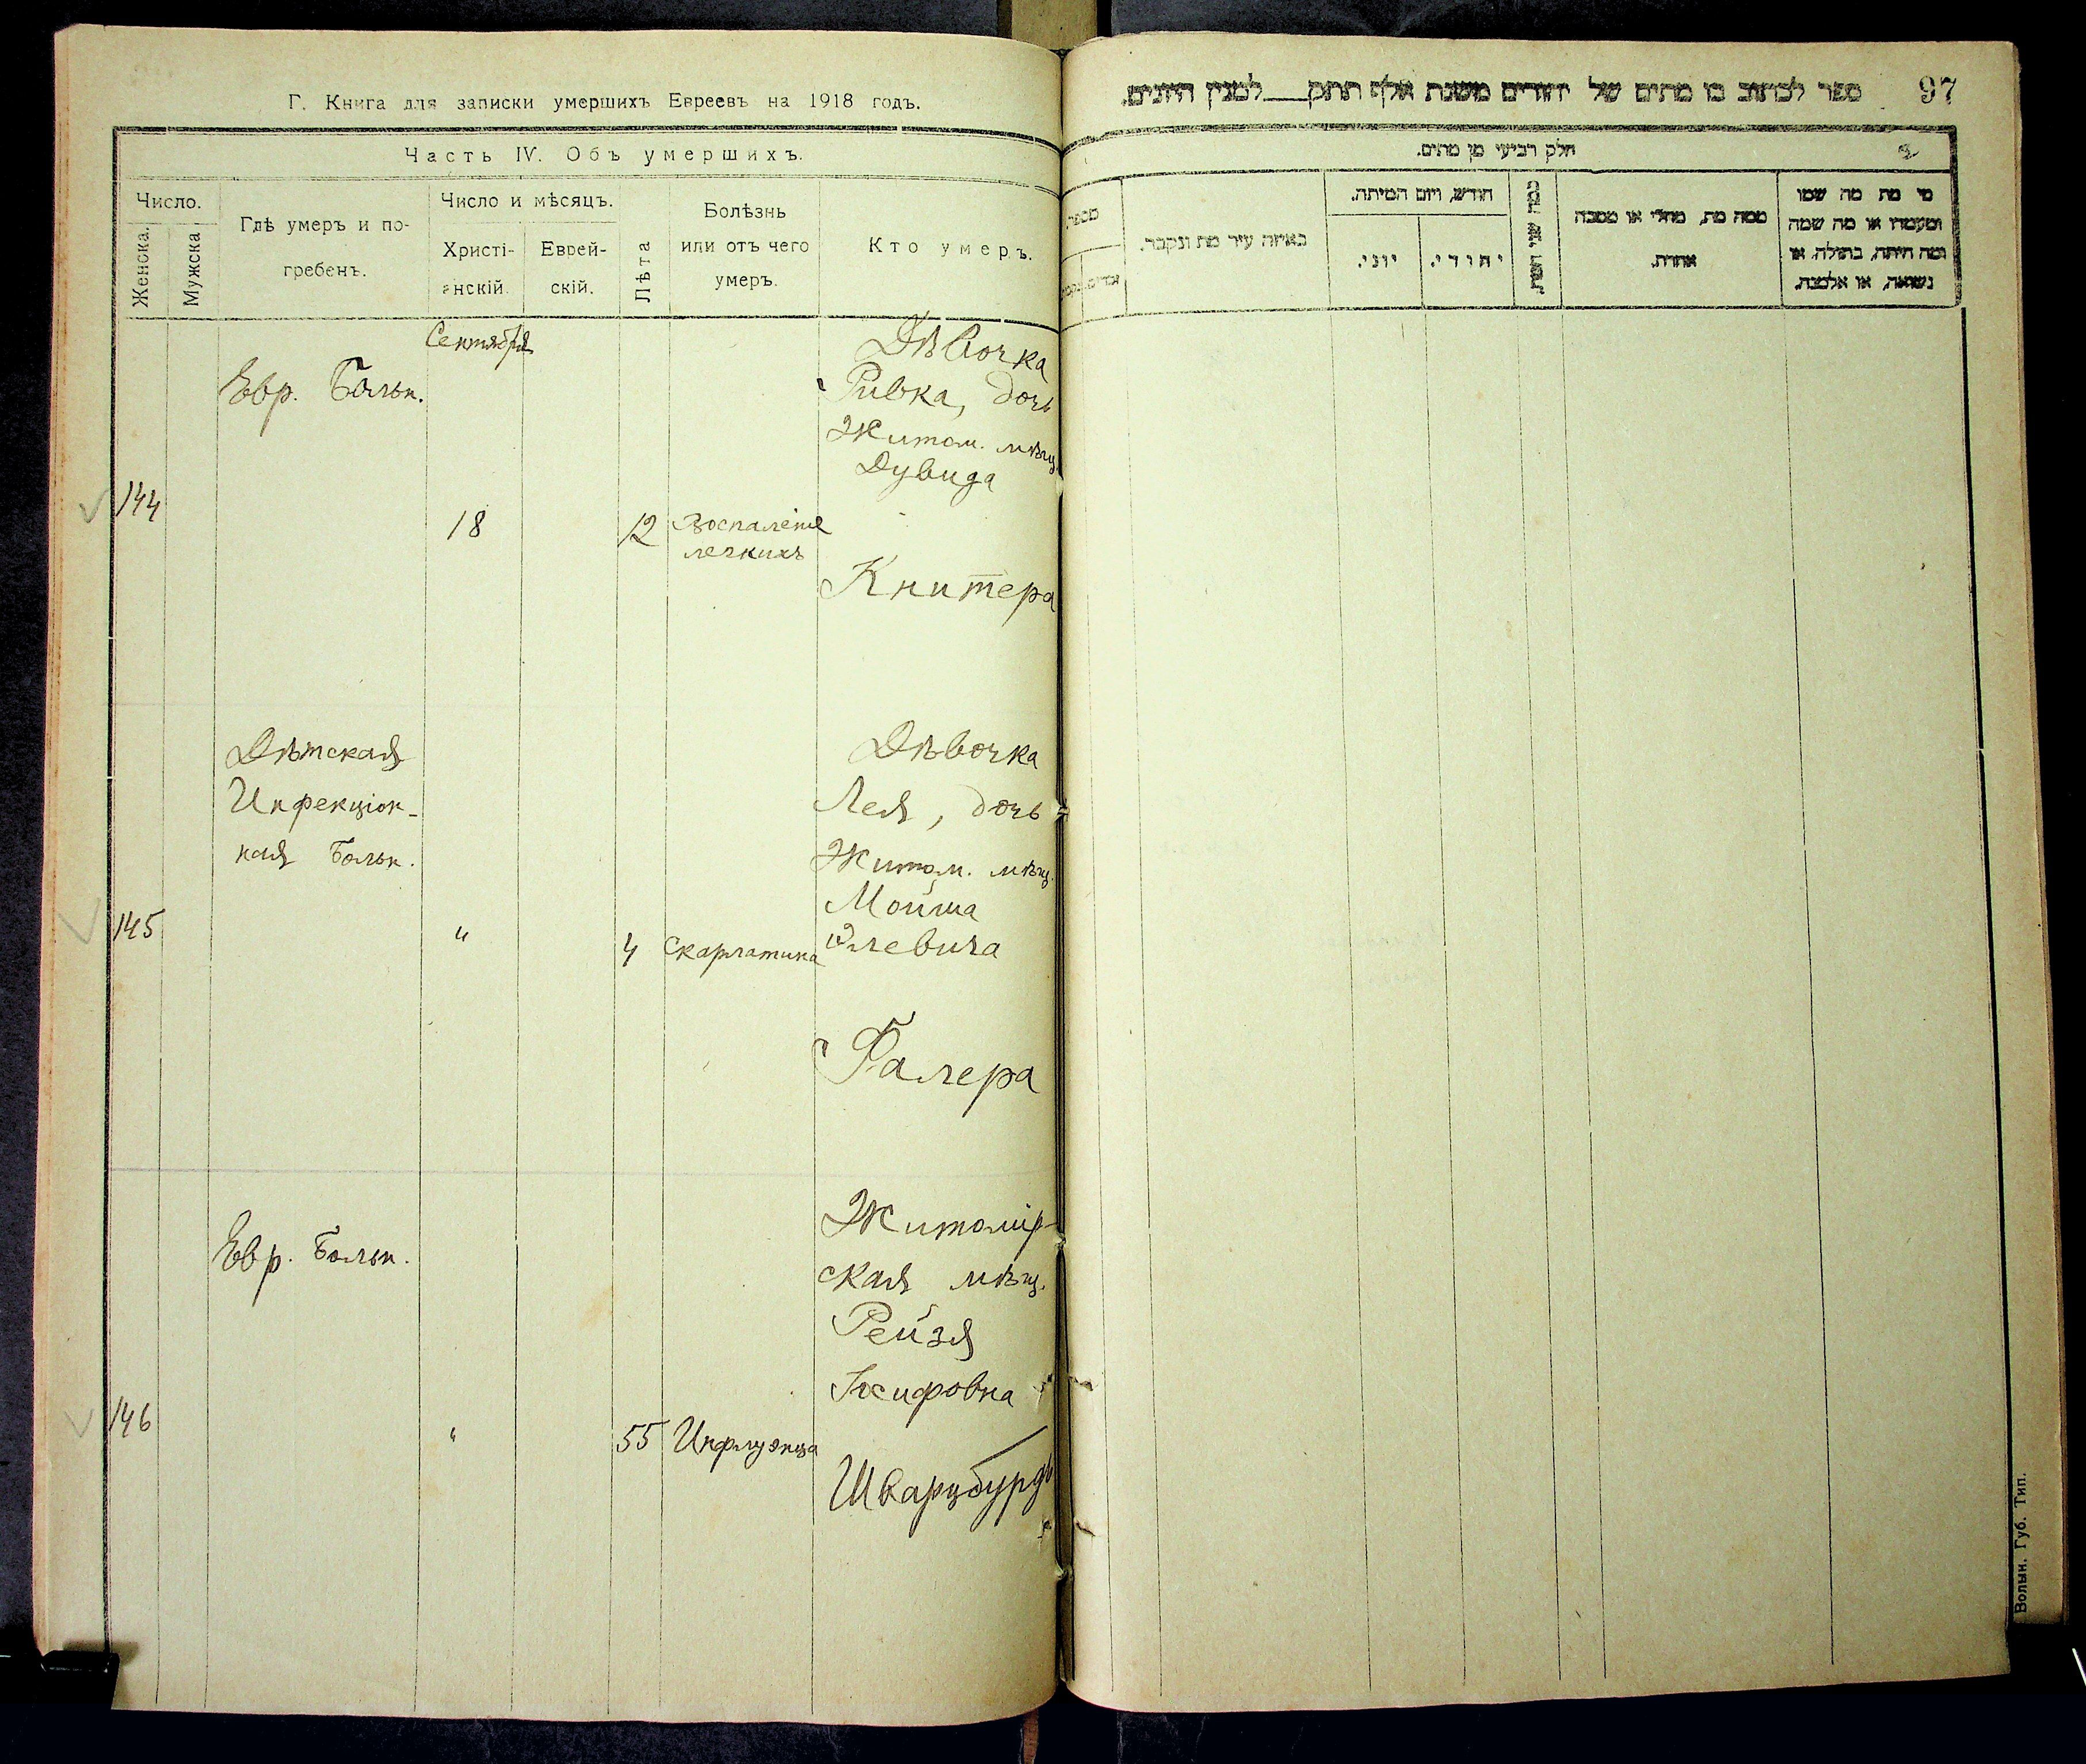 Г. Книга для записки умершихъ Евреевъ на 1918 годъ.
Часть IV. Объ умершихъ.
Число.
Женска.
Мужска
Гдѣ умеръ и по-
гребенъ.
Число и мѣсяцъ.
Христі-
анскій.
Еврей-
скій.
Лѣта
Болѣзнь
или отъ чего
умеръ.
Кто умеръ.
Сентября
144
Евр. Больн.
18
12
Воспаленіе
легкихъ
Дѣвочка
Ривка, дочь
Житом. мѣщ.
Дувида
Книтера
145
Дѣтская
Инфекціон-
ная Больн.
"
4
Скарлатина
Дѣвочка
Лея, дочь
Житом. мѣщ.
Мойша
Галера
146
Евр. Больн.
"
55
Инфлуэнца
Житомір-
ская мѣщ.
Рейзя
Іосифовна
Шварцбурдъ
ספר לכתוב בו מתים של יהודים משנת אלף תתק למנין היונים.
97
חלק רביעי מן מתים.
מספר
באיזה עיר מת ונקבר.
חודש, ויום המיתה.
יוני.
יהודי.
ממה מת, מחלי או מסבה
אחרת.
מי מת מה שמו
ומעמדו או מה שמה
ומה היתה, בתולה, או
נשואה, או אלמנה.
Волын. Губ. Тип.